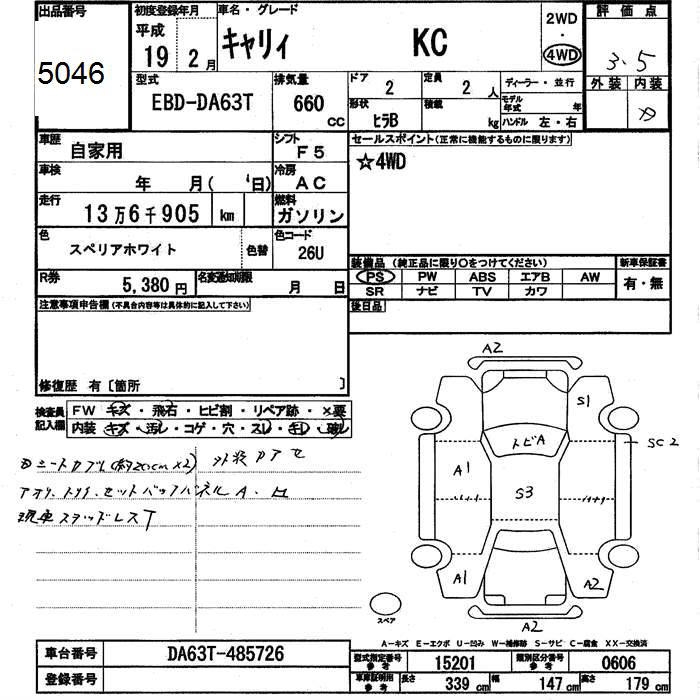 出品番号
5046
初度登録年月
平成
19 2月
車名・グレード
キャリィ KC
2WD
・
4WD
評価点
3.5
外装 内装
D
型式
EBD-DA63T
排気量
660 cc
ドア
2
定員
2 人
ディーラー・並行
形状
ヒラB
積載
kg
モデル年式 年
ハンドル 左・右
車歴
自家用
シフト
F5
セールスポイント(正常に機能するものに限ります)
☆4WD
車検
年 月( 日)
冷房
AC
走行
13万6千905 km
燃料
ガソリン
色
スペリアホワイト
色替
色コード
26U
装備品 (純正品に限り○をつけてください)
新車保証書
PS PW ABS エアB AW
有・無
SR ナビ TV カワ
R券
5,380円
名変通知期限
月 日
後日品
注意事項申告欄(不具合内容等は具体的に記入して下さい)
修復歴 有〔箇所 〕
検査員記入欄
FW キズ・飛石・ヒビ割・リペア跡・×要
内装 キズ・汚レ・コゲ・穴・スレ・キレ・破レ
外装カアセ
現車スタッドレスT
A2
S1
トビA
SC2
A1
S3
A1
A2
スペア
A2
A-キズ E-エクボ U-凹み W-補修跡 S-サビ C-腐食 XX-交換済
車台番号
DA63T-485726
型式指定番号参考
15201
類別区分番号参考
0606
登録番号
車庫証明用参考
長さ 339cm 幅 147cm 高さ 179cm